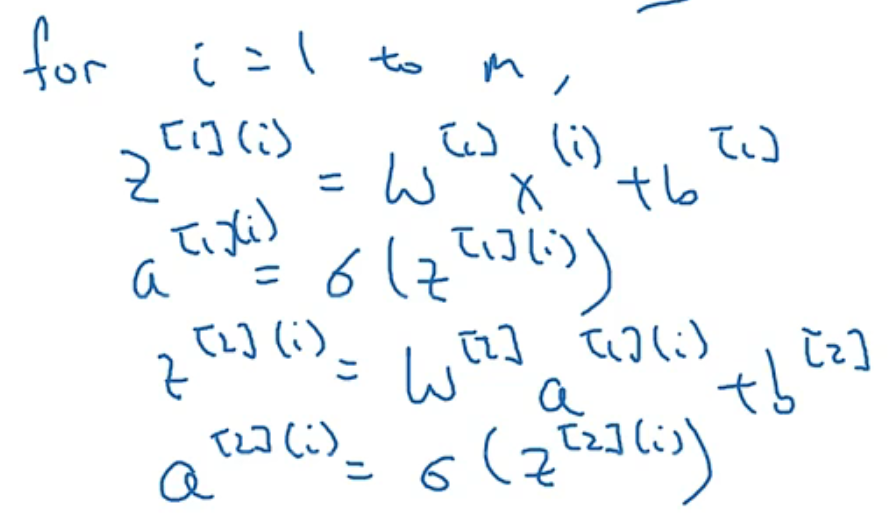 for i = 1 to m,
z^[1](i) = W^[1] x^(i) + b^[1]
a^[1](i) = σ(z^[1](i))
z^[2](i) = W^[2] a^[1](i) + b^[2]
a^[2](i) = σ(z^[2](i))